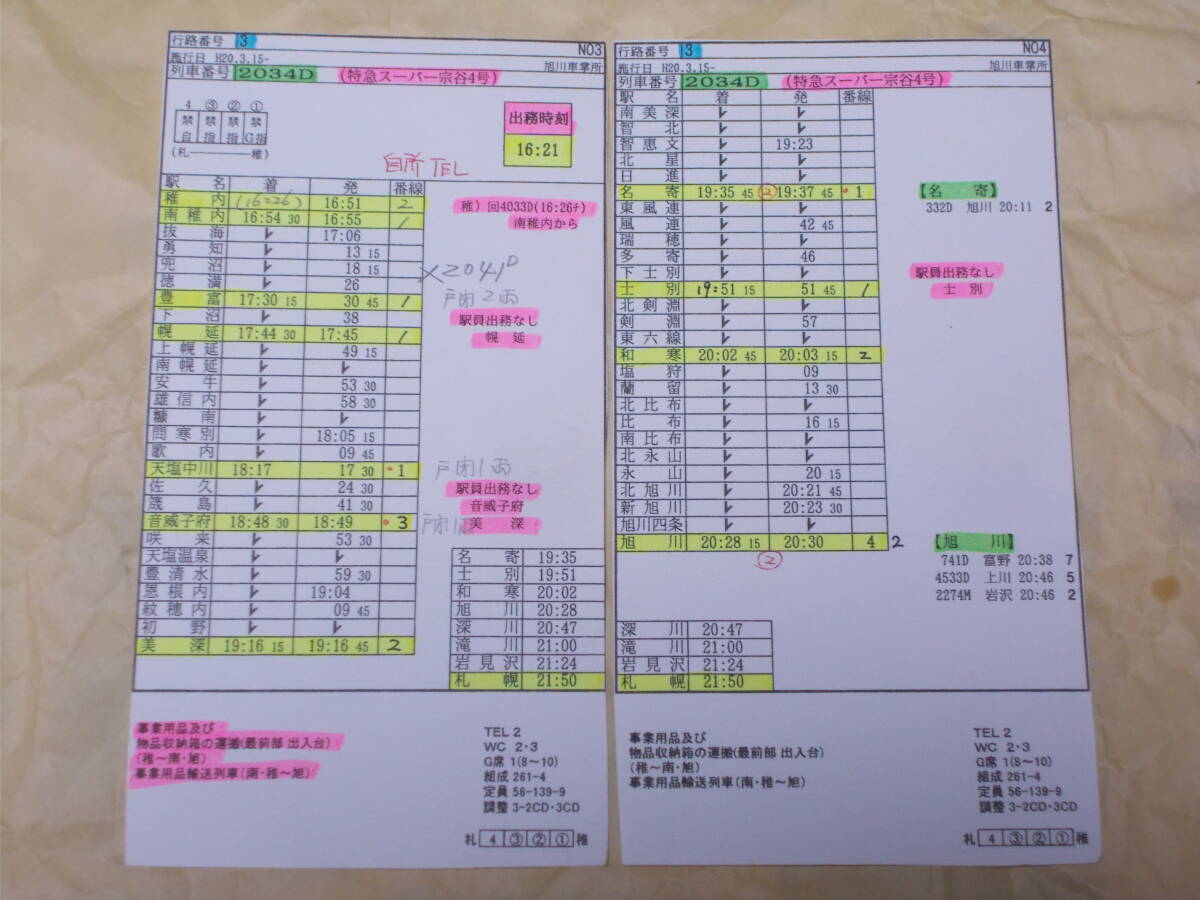 行路番号 3 NO3
施行日 H20.3.15- 旭川車掌所
列車番号 2034D (特急スーパー宗谷4号)
4 ③ ② ①
禁 禁 禁 禁
自 指 指 G指
(札―――稚)
出務時刻
16:21
自所 TEL
駅名 着 発 番線
稚内 (16:26) 16:51 2
稚) 回4033D(16:26チ)
南稚内 16:54 30 16:55 1
南稚内から
抜海 レ 17:06
勇知 レ 13 15
兜沼 レ 18 15
×2041D
徳満 レ 26
豊富 17:30 15 30 45 1
戸閉2両
下沼 レ 38
駅員出務なし
幌延 17:44 30 17:45 1
幌延
上幌延 レ 49 15
南幌延 レ レ
安牛 レ 53 30
雄信内 レ 58 30
糠南 レ レ
問寒別 レ 18:05 15
歌内 レ 09 45
天塩中川 18:17 17 30 1
戸閉1両
佐久 レ 24 30
駅員出務なし
筬島 レ 41 30
音威子府
音威子府 18:48 30 18:49 3
美深
咲来 レ 53 30
天塩温泉 レ レ
豊清水 レ 59 30
恩根内 レ 19:04
紋穂内 レ 09 45
初野 レ レ
美深 19:16 15 19:16 45 2
名寄 19:35
士別 19:51
和寒 20:02
旭川 20:28
深川 20:47
滝川 21:00
岩見沢 21:24
札幌 21:50
事業用品及び
物品収納箱の運搬(最前部 出入台)
(稚～南・旭)
事業用品輸送列車(南・稚～旭)
TEL 2
WC 2・3
G席 1(8～10)
組成 261-4
定員 56-139-9
調整 3-2CD・3CD
札 4 ③ ② ① 稚
行路番号 3 NO4
施行日 H20.3.15- 旭川車掌所
列車番号 2034D (特急スーパー宗谷4号)
駅名 着 発 番線
南美深 レ レ
智北 レ レ
智恵文 レ 19:23
北星 レ レ
日進 レ レ
名寄 19:35 45 ② 19:37 45 1
【名寄】
東風連 レ レ
332D 旭川 20:11 2
風連 レ 42 45
瑞穂 レ レ
多寄 レ 46
下士別 レ レ
駅員出務なし
士別 19:51 15 51 45 1
士別
北剣淵 レ レ
剣淵 レ 57
東六線 レ レ
和寒 20:02 45 20:03 15 2
塩狩 レ 09
蘭留 レ 13 30
北比布 レ レ
比布 レ 16 15
南比布 レ レ
北永山 レ レ
永山 レ 20 15
北旭川 レ 20:21 45
新旭川 レ 20:23 30
旭川四条 レ レ
旭川 20:28 15 20:30 4 2
②
【旭川】
741D 富野 20:38 7
4533D 上川 20:46 5
2274M 岩沢 20:46 2
深川 20:47
滝川 21:00
岩見沢 21:24
札幌 21:50
事業用品及び
物品収納箱の運搬(最前部 出入台)
(稚～南・旭)
事業用品輸送列車(南・稚～旭)
TEL 2
WC 2・3
G席 1(8～10)
組成 261-4
定員 56-139-9
調整 3-2CD・3CD
札 4 ③ ② ① 稚